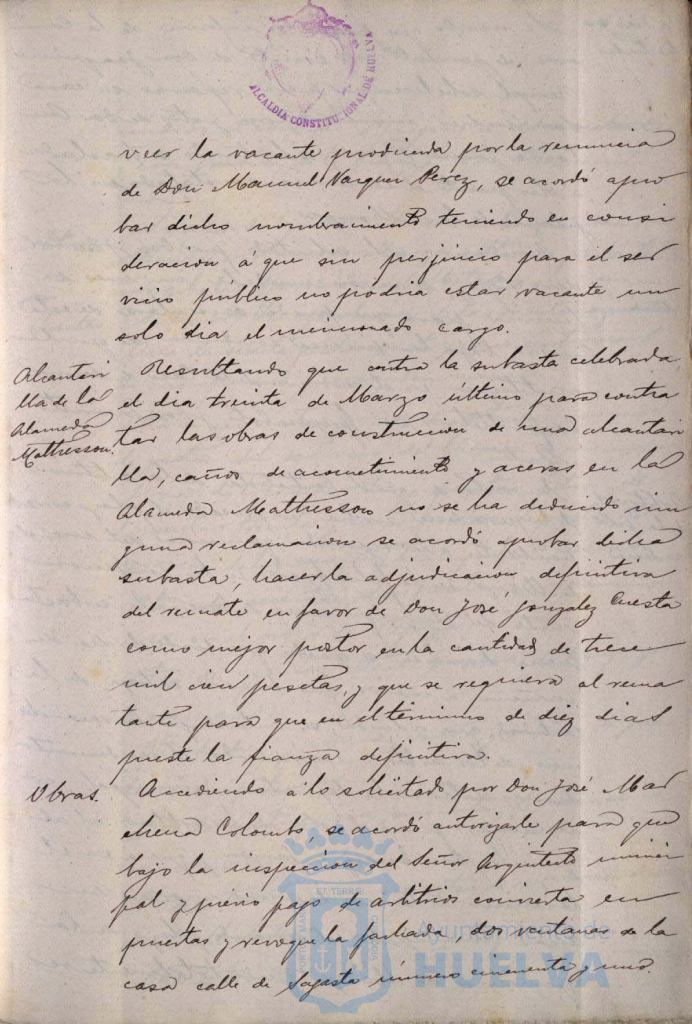 ALCALDIA CONSTITUCIONAL DE HUELVA
veer la vacante producida por la renuncia
de Don Manuel Vazquez Perez, se acordó apro
bar dicho nombramiento teniendo en consi
deracion á que sin perjuicio para el ser
vicio público no podria estar vacante un
solo dia el mencionado cargo.
Alcantari
lla de la
Alameda
Mathesson.
Resultando que contra la subasta celebrada
el dia treinta de Marzo último para contra
tar las obras de construccion de una alcantari
lla, caños de acometimiento y aceras en la
Alameda Mathesson no se ha deducido nin
guna reclamacion se acordó aprobar dicha
subasta, hacer la adjudicacion definitiva
del remate en favor de Don José Gonzalez Cuesta
como mejor postor en la cantidad de trece
mil cien pesetas, y que se requiera al rema
tante para que en el término de diéz dias
preste la fianza definitiva.
Obras.
Accediendo á lo solicitado por Don José Mar
chena Colombo, se acordó autorizarle para que
bajo la inspeccion del Señor Arquitecto munici
pal y previo pago de arbitrios convierta en
puertas y revoque la fachada, dos ventanas de la
casa calle de Sagasta número cincuenta y uno.
Ayuntamiento de
HUELVA